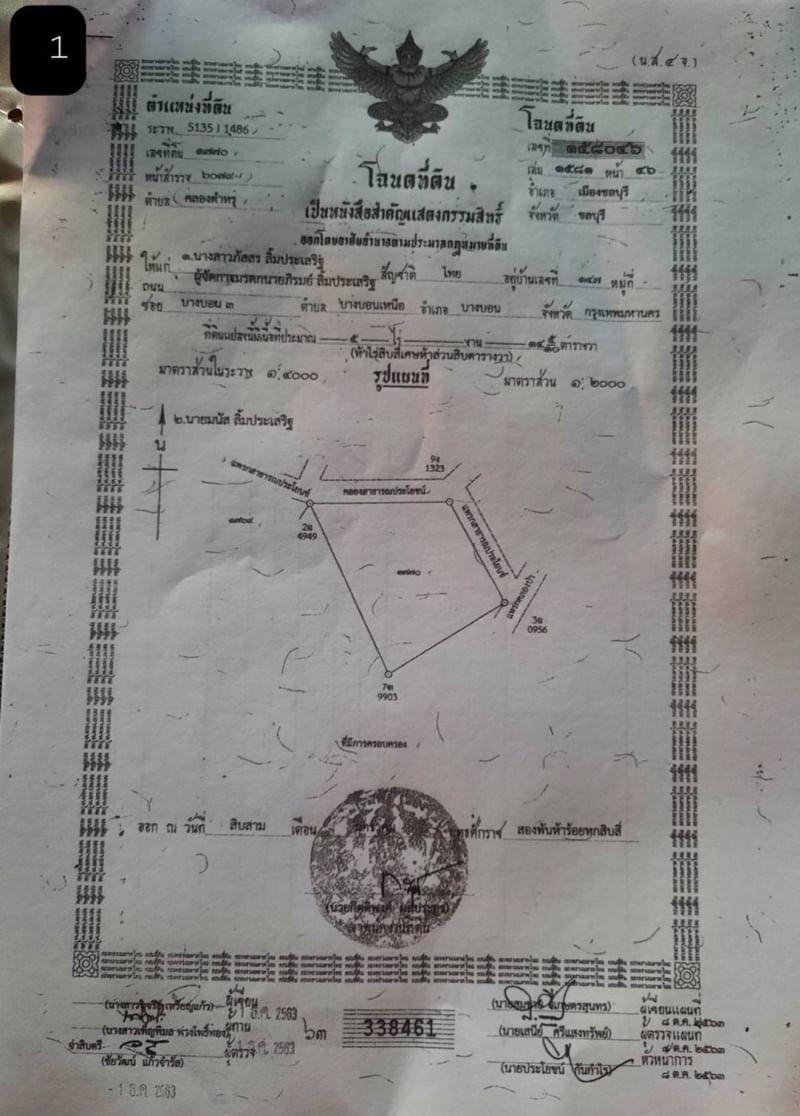 1
(น.ส.๔ จ.)
ตำแหน่งที่ดิน
ระวาง 5135 I 1486
เลขที่ดิน ๑๗๗๐
หน้าสำรวจ ๖๐๗๙
ตำบล คลองตำหรุ
โฉนดที่ดิน
เลขที่ ๑๕๘๐๔๖
เล่ม ๑๕๘๑ หน้า ๔๖
อำเภอ เมืองชลบุรี
จังหวัด ชลบุรี
โฉนดที่ดิน
เป็นหนังสือสำคัญแสดงกรรมสิทธิ์
ออกโดยอาศัยอำนาจตามประมวลกฎหมายที่ดิน
๑.นางสาวภัสสร ลิ้มประเสริฐ
ให้แก่ ผู้จัดการมรดกนายภิรมย์ ลิ้มประเสริฐ สัญชาติ ไทย อยู่บ้านเลขที่ ๑๔๗ หมู่ที่
ถนน
ซอย บางบอน ๓ ตำบล บางบอนเหนือ อำเภอ บางบอน จังหวัด กรุงเทพมหานคร
ที่ดินแปลงนี้มีเนื้อที่ประมาณ ๕ ไร่ งาน ๑๔ ๕/๑๐ ตารางวา
(ห้าไร่สิบสี่เศษห้าส่วนสิบตารางวา)
มาตราส่วนในระวาง ๑:๔๐๐๐ รูปแผนที่ มาตราส่วน ๑:๒๐๐๐
๒.นายมนัส ลิ้มประเสริฐ
น
แพรกสาธารณประโยชน์
คลองสาธารณประโยชน์
1323
2ฉ
4949
แพรกสาธารณประโยชน์
๑๗๗๐
แพรกคลองบัว
0956
9903
ที่มีการครอบครอง
ออก ณ วันที่ สิบสาม เดือน พุทธศักราช สองพันห้าร้อยหกสิบสี่
เจ้าพนักงานที่ดิน
ผู้เขียน
1 ธ.ค. 2563
ผู้ทาน
จ่าสิบตรี
(ชัยวัฒน์ แก้วจำรัส) ผู้ตรวจ 1 ธ.ค. 2563
- 1 ธ.ค. 2563
๖๓
338461
ผู้เขียนแผนที่
๘ ต.ค. ๒๕๖๓
(นายเสนีย์ ศรีแสงทรัพย์) ผู้ตรวจแผนที่
๘ ต.ค. ๒๕๖๓
(นายประโยชน์ กันกำไร) หัวหน้าการ
๘ ต.ค. ๒๕๖๓